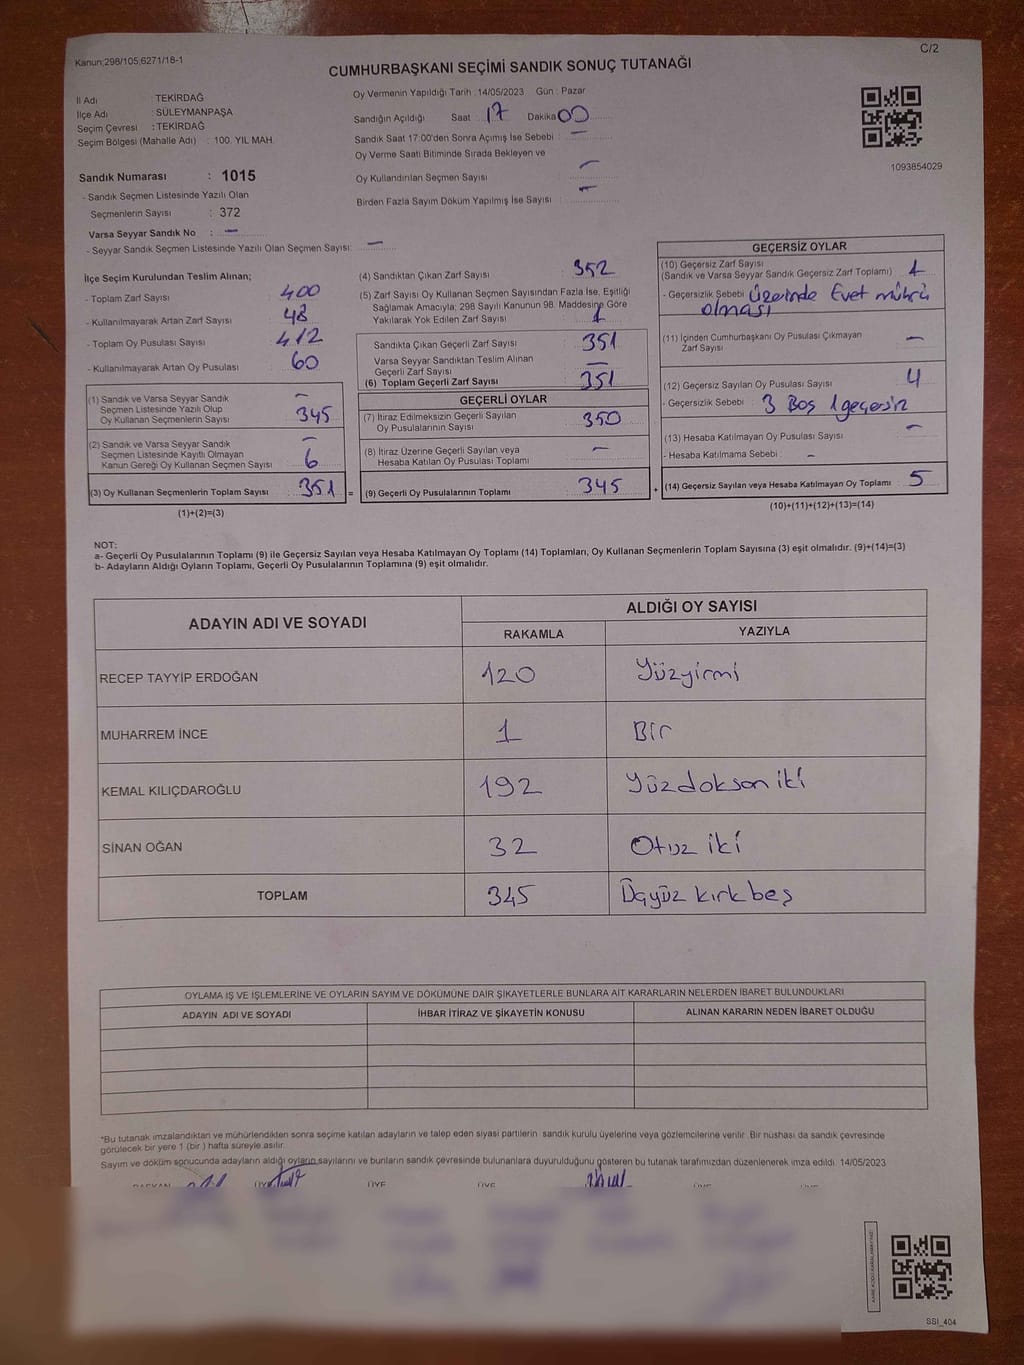 Kanun;298/105;6271/18-1
C/2
CUMHURBAŞKANI SEÇİMİ SANDIK SONUÇ TUTANAĞI
İl Adı TEKİRDAĞ
İlçe Adı : SÜLEYMANPAŞA
Seçim Çevresi : TEKİRDAĞ
Seçim Bölgesi (Mahalle Adı) : 100. YIL MAH.
Oy Vermenin Yapıldığı Tarih : 14/05/2023 Gün : Pazar
Sandığın Açıldığı Saat 17 Dakika 00
Sandık Saat 17:00'den Sonra Açımış İse Sebebi : —
Oy Verme Saati Bitiminde Sırada Bekleyen ve
Oy Kullandırılan Seçmen Sayısı —
Birden Fazla Sayım Döküm Yapılmış İse Sayısı : —
1093854029
Sandık Numarası : 1015
- Sandık Seçmen Listesinde Yazılı Olan
Seçmenlerin Sayısı : 372
Varsa Seyyar Sandık No : —
- Seyyar Sandık Seçmen Listesinde Yazılı Olan Seçmen Sayısı: —
İlçe Seçim Kurulundan Teslim Alınan;
- Toplam Zarf Sayısı : 400
- Kullanılmayarak Artan Zarf Sayısı : 48
- Toplam Oy Pusulası Sayısı : 412
- Kullanılmayarak Artan Oy Pusulası : 60
(1) Sandık ve Varsa Seyyar Sandık —
Seçmen Listesinde Yazılı Olup
Oy Kullanan Seçmenlerin Sayısı : 345
(2) Sandık ve Varsa Seyyar Sandık —
Seçmen Listesinde Kayıtlı Olmayan
Kanun Gereği Oy Kullanan Seçmen Sayısı : 6
(3) Oy Kullanan Seçmenlerin Toplam Sayısı : 351 =
(1)+(2)=(3)
(4) Sandıktan Çıkan Zarf Sayısı : 352
(5) Zarf Sayısı Oy Kullanan Seçmen Sayısından Fazla İse, Eşitliği
Sağlamak Amacıyla; 298 Sayılı Kanunun 98. Maddesine Göre
Yakılarak Yok Edilen Zarf Sayısı : 1
Sandıkta Çıkan Geçerli Zarf Sayısı : 351
Varsa Seyyar Sandıktan Teslim Alınan
Geçerli Zarf Sayısı : —
(6) Toplam Geçerli Zarf Sayısı : 351
GEÇERLİ OYLAR
(7) İtiraz Edilmeksizin Geçerli Sayılan
Oy Pusulalarının Sayısı : 350
(8) İtiraz Üzerine Geçerli Sayılan veya
Hesaba Katılan Oy Pusulası Toplamı : —
(9) Geçerli Oy Pusulalarının Toplamı : 345 +
GEÇERSİZ OYLAR
(10) Geçersiz Zarf Sayısı
(Sandık ve Varsa Seyyar Sandık Geçersiz Zarf Toplamı) : 1
- Geçersizlik Sebebi : Üzerinde Evet mührü
olması
(11) İçinden Cumhurbaşkanı Oy Pusulası Çıkmayan
Zarf Sayısı —
(12) Geçersiz Sayılan Oy Pusulası Sayısı : 4
- Geçersizlik Sebebi : 3 Boş 1 geçersiz
(13) Hesaba Katılmayan Oy Pusulası Sayısı : —
- Hesaba Katılmama Sebebi : -
(14) Geçersiz Sayılan veya Hesaba Katılmayan Oy Toplamı : 5
(10)+(11)+(12)+(13)=(14)
NOT:
a- Geçerli Oy Pusulalarının Toplamı (9) ile Geçersiz Sayılan veya Hesaba Katılmayan Oy Toplamı (14) Toplamları, Oy Kullanan Seçmenlerin Toplam Sayısına (3) eşit olmalıdır. (9)+(14)=(3)
b- Adayların Aldığı Oyların Toplamı, Geçerli Oy Pusulalarının Toplamına (9) eşit olmalıdır.
ADAYIN ADI VE SOYADI
ALDIĞI OY SAYISI
RAKAMLA YAZIYLA
RECEP TAYYİP ERDOĞAN 120 Yüzyirmi
MUHARREM İNCE 1 Bir
KEMAL KILIÇDAROĞLU 192 Yüzdoksan iki
SİNAN OĞAN 32 Otuz iki
TOPLAM 345 Üçyüz kırk beş
OYLAMA İŞ VE İŞLEMLERİNE VE OYLARIN SAYIM VE DÖKÜMÜNE DAİR ŞİKAYETLERLE BUNLARA AİT KARARLARIN NELERDEN İBARET BULUNDUKLARI
ADAYIN ADI VE SOYADI İHBAR İTİRAZ VE ŞİKAYETİN KONUSU ALINAN KARARIN NEDEN İBARET OLDUĞU
*Bu tutanak imzalandıktan ve mühürlendikten sonra seçime katılan adayların ve talep eden siyasi partilerin sandık kurulu üyelerine veya gözlemcilerine verilir. Bir nüshası da sandık çevresinde
görülecek bir yere 1 (bir ) hafta süreyle asılır.
Sayım ve döküm sonucunda adayların aldığı oyların sayılarını ve bunların sandık çevresinde bulunanlara duyurulduğunu gösteren bu tutanak tarafımızdan düzenlenerek imza edildi. 14/05/2023
BAŞKAN ÜYE ÜYE ÜYE ÜYE ÜYE
SSI_404